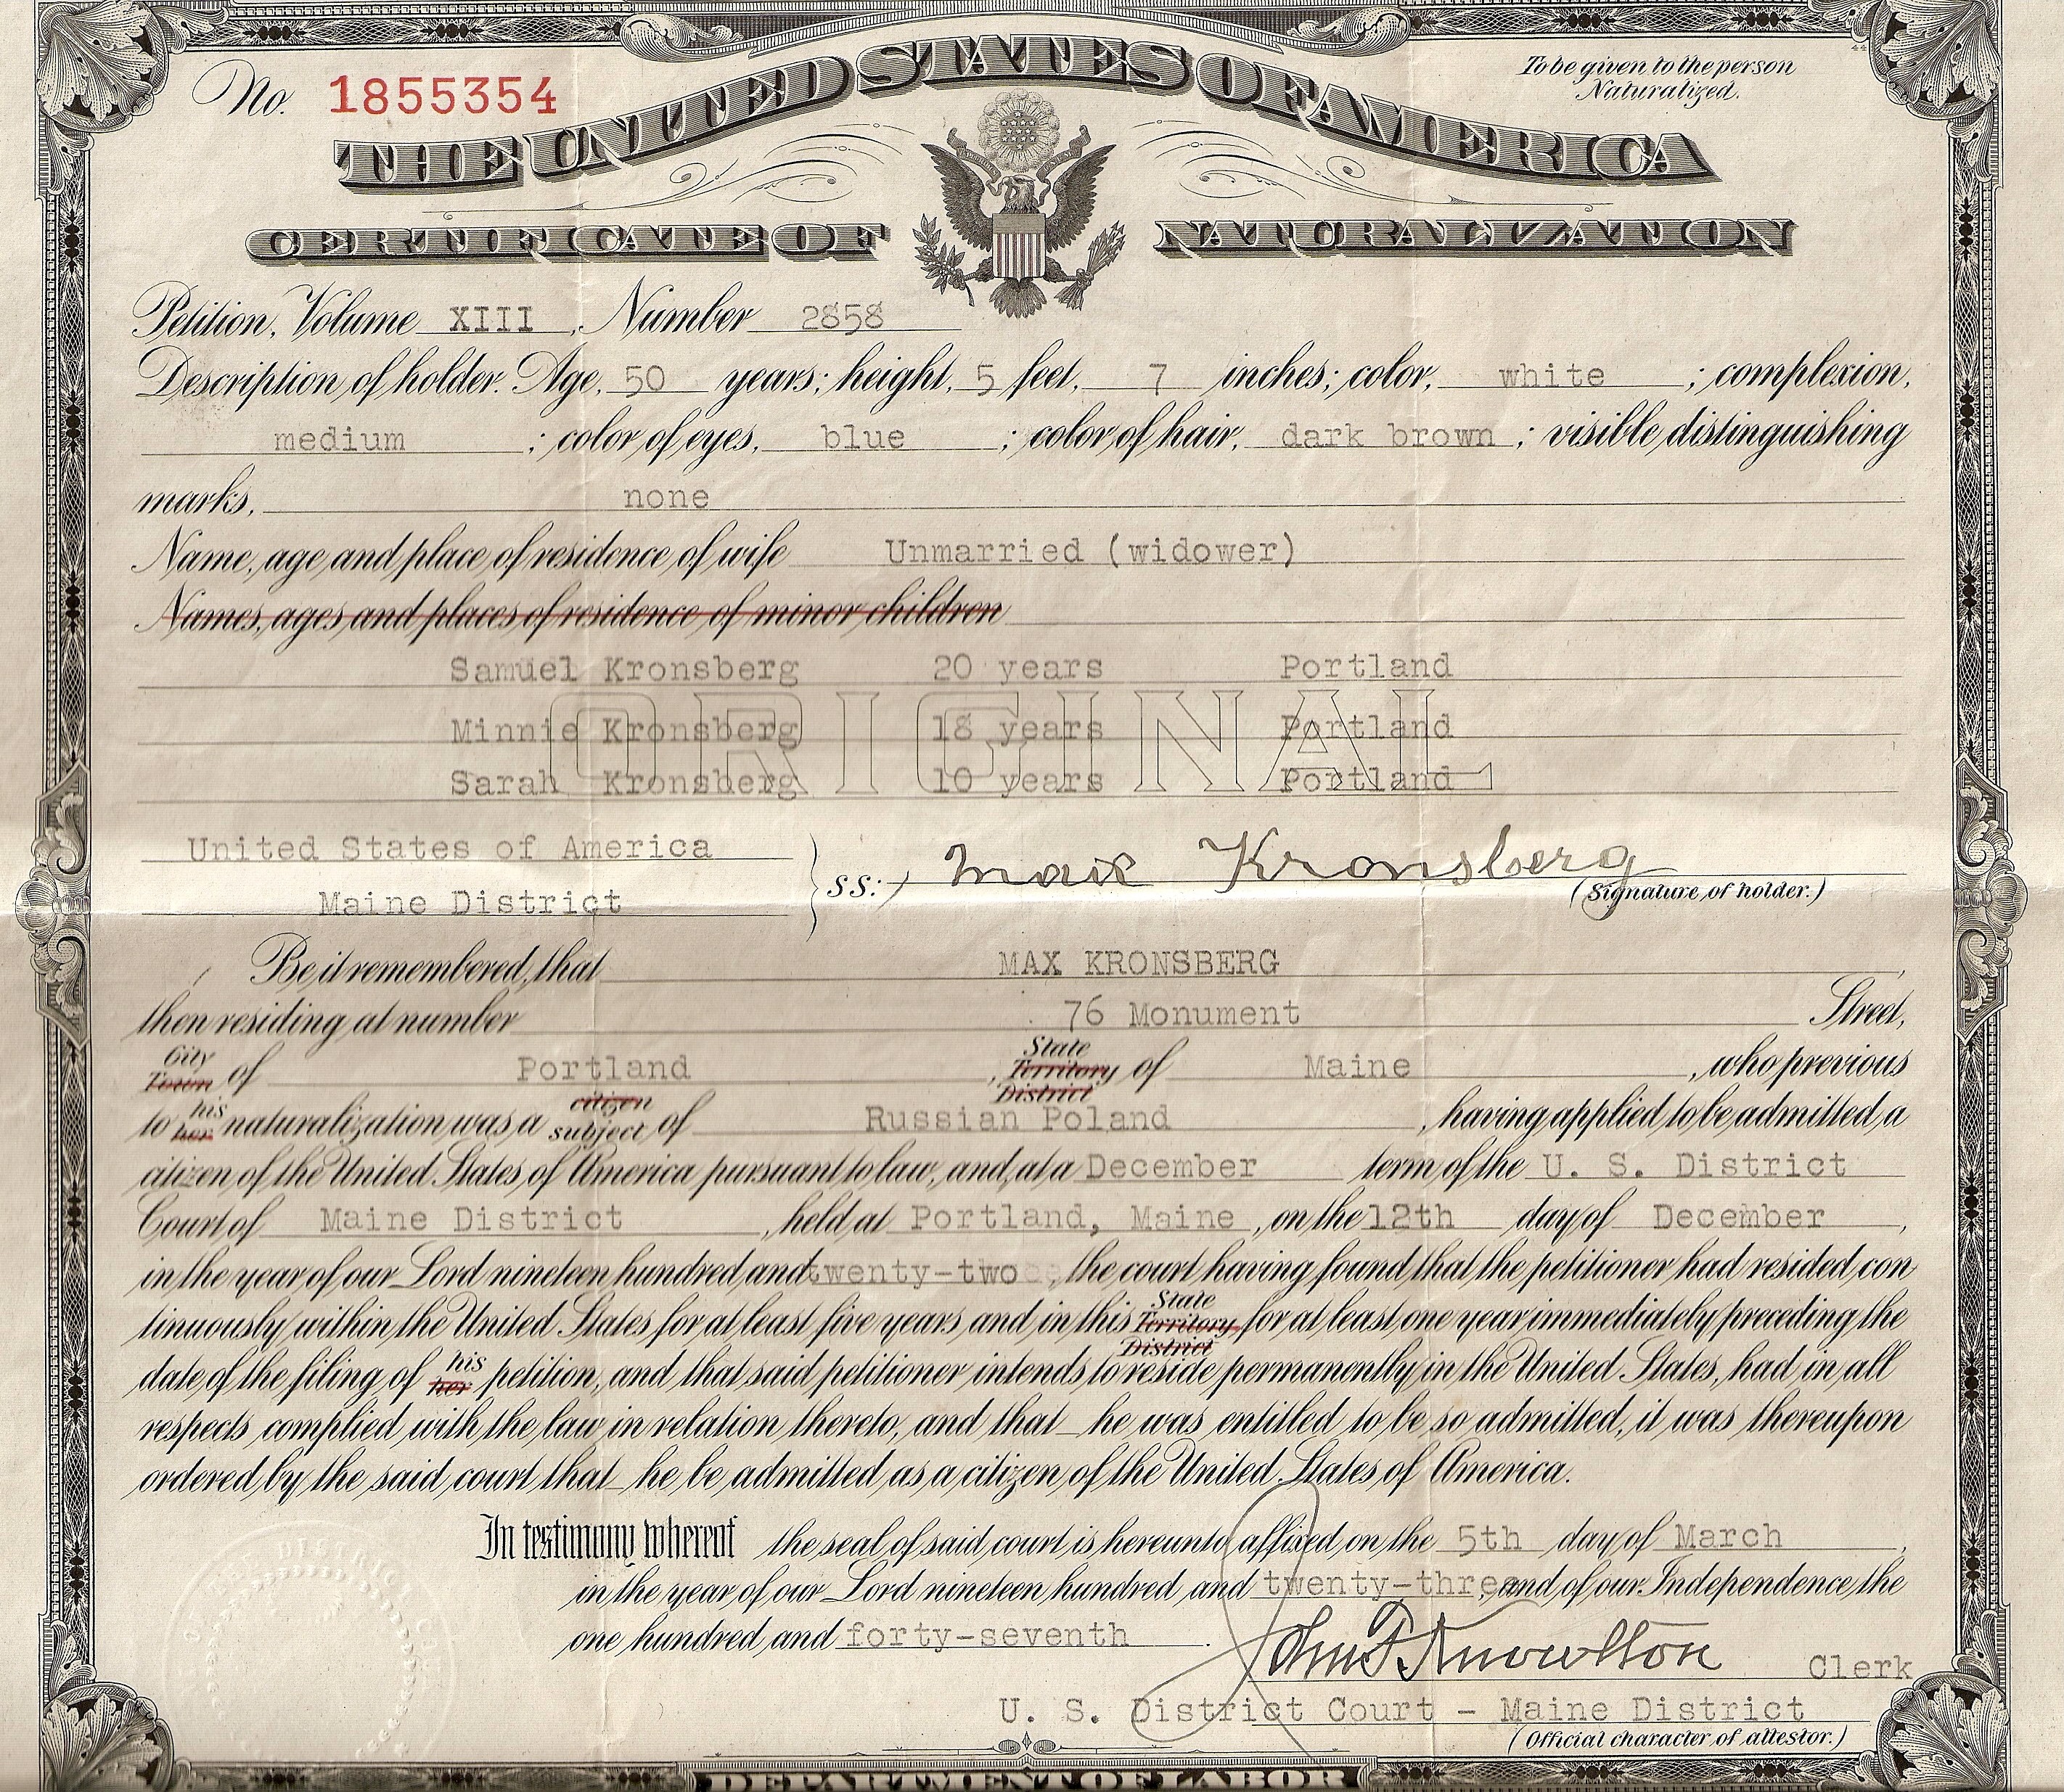 No. 1855354
To be given to the person
Naturalized.
THE UNITED STATES OF AMERICA
CERTIFICATE OF NATURALIZATION
Petition, Volume XIII, Number 2858
Description of holder. Age, 50 years; height, 5 feet, 7 inches; color, white ; complexion,
medium ; color of eyes, blue ; color of hair, dark brown ; visible distinguishing
marks, none
Name, age and place of residence of wife Unmarried (widower)
Names, ages and places of residence of minor children
Samuel Kronsberg 20 years Portland
ORIGINAL
Minnie Kronsberg 18 years Portland
Sarah Kronsberg 10 years Portland
United States of America
Maine District
ss:
Max Kronsberg
(Signature of holder.)
Be it remembered, that MAX KRONSBERG,
then residing at number 76 Monument Street,
City Town of Portland, State Territory District of Maine, who previous
to his her naturalization was a citizen subject of Russian Poland, having applied to be admitted a
citizen of the United States of America pursuant to law, and, at a December term of the U. S. District
Court of Maine District, held at Portland, Maine, on the 12th day of December,
in the year of our Lord nineteen hundred and twenty-two, the court having found that the petitioner had resided con
tinuously within the United States for at least five years and in this State Territory District for at least one year immediately preceding the
date of the filing of his her petition, and that said petitioner intends to reside permanently in the United States, had in all
respects complied with the law in relation thereto, and that he was entitled to be so admitted, it was thereupon
ordered by the said court that he be admitted as a citizen of the United States of America.
In testimony whereof the seal of said court is hereunto affixed on the 5th day of March,
in the year of our Lord nineteen hundred and twenty-three, and of our Independence the
one hundred and forty-seventh.
John F. Knowlton Clerk
U. S. District Court - Maine District
(Official character of attestor.)
DEPARTMENT OF LABOR